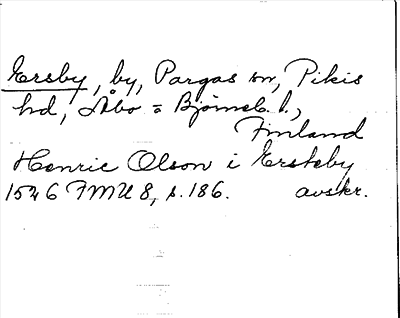 Ersby, by, Pargas sn, Pikis
hd, Åbo = Björneb. l.,
Finland
Henric Olson i Ersteby
1546 FMU 8, s. 186. avskr.